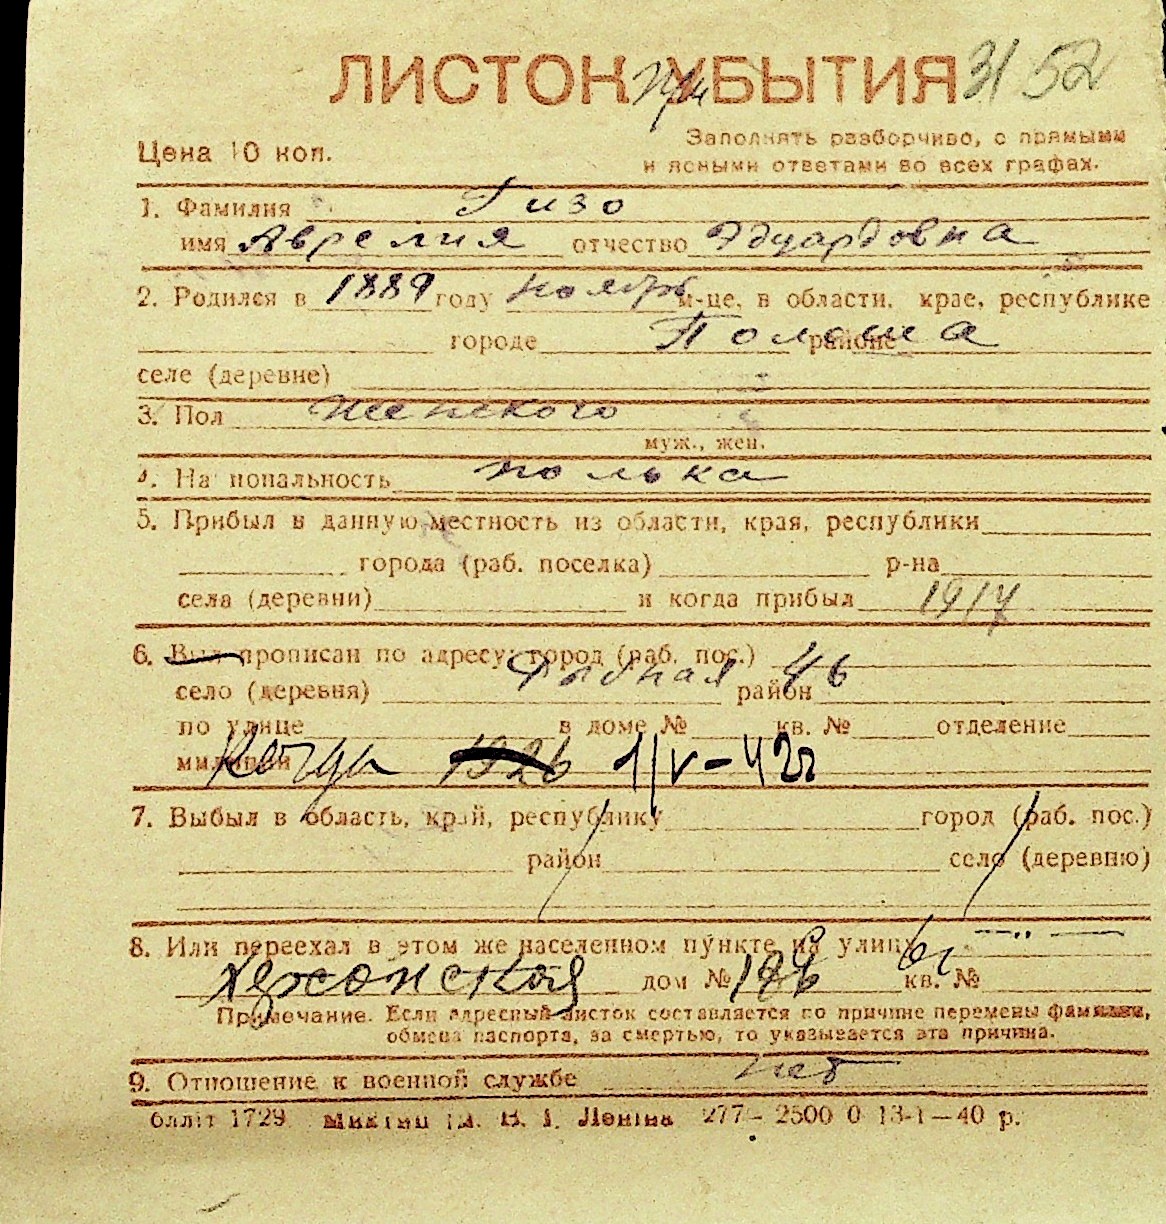 ЛИСТОК УБЫТИЯ При 3152
Цена 10 коп.
Заполнять разборчиво, с прямыми
и ясными ответами во всех графах.
1. Фамилия Гизо
имя Аврелия отчество Эдуардовна
2. Родился в 1889 году ноябрь м-це, в области, крае, республике
городе Польша районе
селе (деревне)
3. Пол женского
муж., жен.
4. Национальность полька
5. Прибыл в данную местность из области, края, республики
города (раб. поселка) р-на
села (деревни) и когда прибыл 1917
6. Был прописан по адресу: город (раб. пос.)
село (деревня) Рыбная район 46
по улице в доме № кв. № отделение
милиции Когда 1926 1/V-42г
7. Выбыл в область, край, республику город (раб. пос.)
район село (деревню)
8. Или переехал в этом же населенном пункте на улицу
Херсонская дом № кв. №
Примечание. Если адресный листок составляется по причине перемены фамилии,
обмена паспорта, за смертью, то указывается эта причина.
9. Отношение к военной службе нет
1729 В. І. Леніна 277 - 2500 0 13-1-40 р.